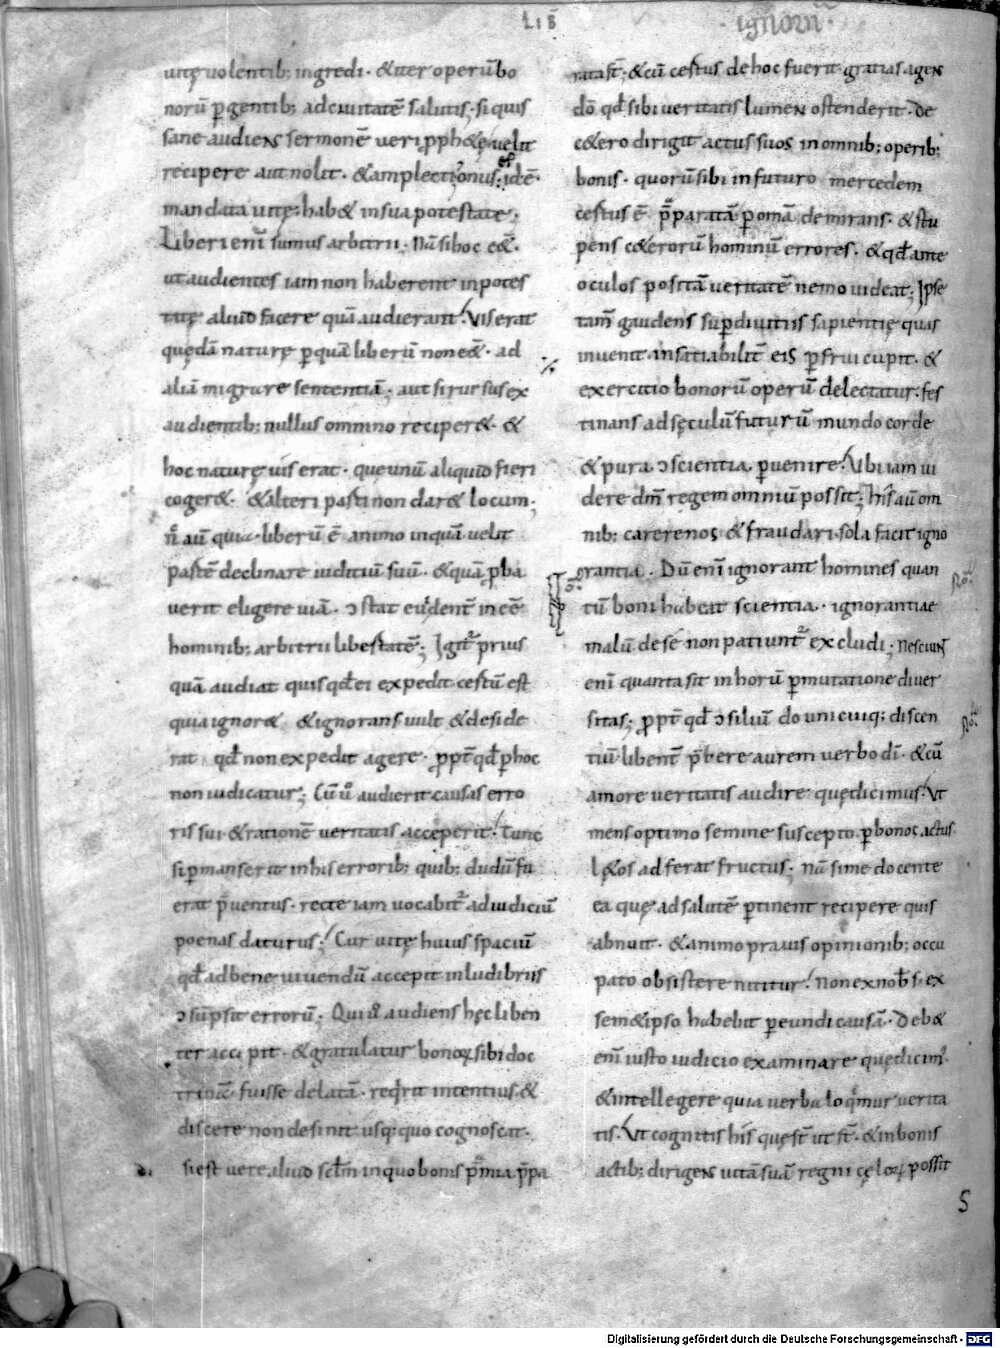 LIB
ignorn̄
uitę uolentib; ingredi · & iter operū bo
norū ꝑgentib; ad ciuitatē salutis · si quis
sane audiens sermonē ueri ꝓph&ę uelit
recipere aut nolit · & amplecti onus ei; id ē ·
mandata uitę; hab& in sua potestate ·
Liberi eni sumus arbitrii · Nā si hoc eē& ·
ut audientes iam non haberent in potes
tate aliud facere quā audierant · Vis erat
quędā naturę ꝑ quā liberū non eē& · ad
aliā migrare sententiā · aut si rursus ex
audientib; nullus omnino reciper& · &
hoc naturę uis erat · que unū aliquid fieri
coger& · & alteri parti non dar& locum;
N̄ aū quia liberū ē animo in quā uelit
partē declinare iuditiū suū · & quā ꝓba
uerit eligere uiā · ɔstat euident inēē
hominib; arbitrii libertatē; Igit prius
quā audiat quis qđ ei expedit certū est
quia ignor& & ignorans uult & deside
rat qđ non expedit agere · ꝓpt qđ ꝑ hoc
non iudicatur; Cū ů audierit causas erro
ris sui & rationē ueritatis acceperit · Tunc
si ꝑmanserit in his errorib; quib; dudū fu
erat p̄uentus · recte iam uocabit ad iudiciū
poenas daturus; Cur uitę huius spaciū
qđ ad bene uiuendū accepit in ludibriis
ɔsūpsit errorū · Qui ů audiens hęc liben
ter accipit · & gratulatur bonoꝝ sibi doc
trinā fuisse delatā · reqrit intentius · &
discere non desinit usq; quo cognoscat ·
si est uere aliud sclm in quo bonis p̄mia p̄pa
rata st; & cū certus de hoc fuerit gratias agen
do qđ sibi ueritatis lumen ostenderit · De
c&ero dirigit actus suos in omnib; operib;
bonis · quorū sibi in futuro mercedem
certus ē p̄paratā ꝑ omā demirans · & stu
pens c&erorū hominū errores · & qđ ante
oculos positā ueritatē nemo uideat; Ipse
tam gaudens suꝑ diuitiis sapientię quas
inuenit insatiabilit eis ꝑfrui cupit · &
exercitio bonorū operū delectatur · fes
tinans ad sęculū futurū mundo corde
& pura ɔscientia ꝑuenire · Vbi iam ui
dere dm̄ regem omniū possit; his aū om
nib; carere nos & fraudari · sola facit igno
rantia · Dū eni ignorant homines quan
tū boni habeat scientia · ignorantiae
malū de se non patiunt excludi; Nesciunt
eni quanta sit in horū ꝑmutatione diuer
sitas; ꝓpt qđ ɔsiliū do unicuiq; discen
tiū libent p̄bere aurem uerbo dī · & cū
amore ueritatis audire quę dicimus · Vt
mens optimo semine suscepto · ꝑ bonos actus
l&os adferat fructus; nā si me docente
ea quę ad salutē ꝑtinent recipere quis
abnuit · & animo prauis opinionib; occu
pato obsistere nititur · Non ex nob s; ex
sem&ipso habebit ꝑeundi causā · Deb&
eni iusto iudicio examinare quę dicim
& intellegere quia uerba loqmur uerita
tis · Vt cognitis his quę st ut st · & in bonis
actib; dirigens uitā suā regni cęloꝝ possit
5
Digitalisierung gefördert durch die Deutsche Forschungsgemeinschaft · DFG